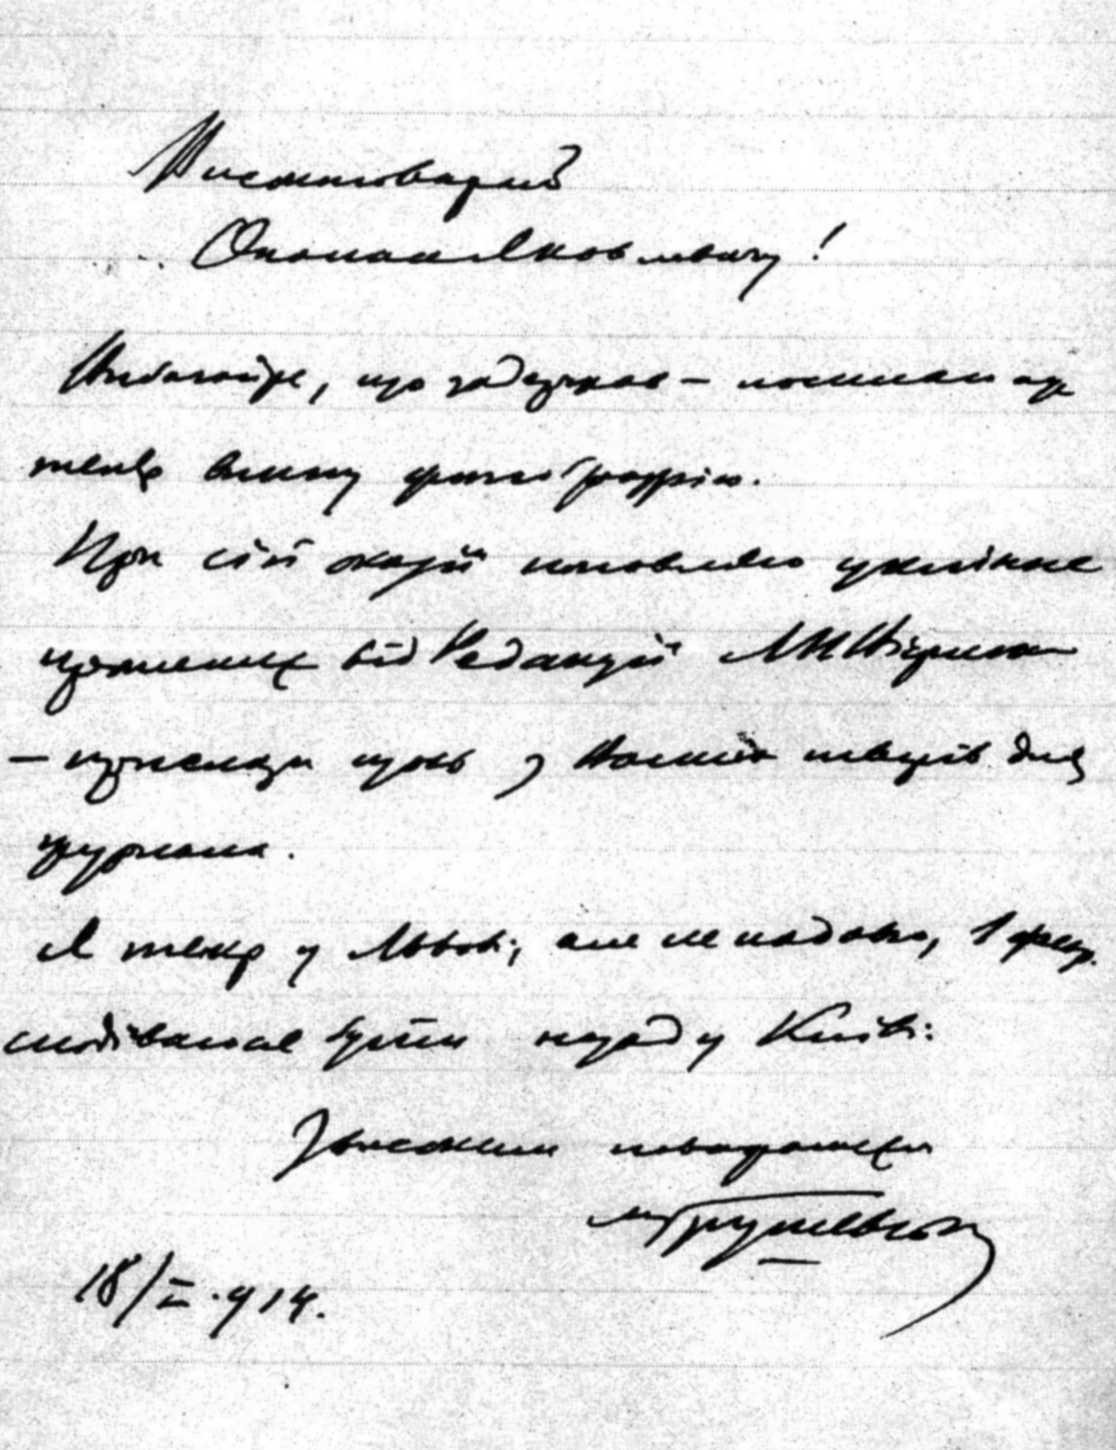 Високоповажний
Опанас Яковлевичу!
Вибачайте, що задержав – посилаю
тепер Вашу фотоґрафію.
При сій оказії поновляю уклінне
прошеннє від Редакції ЛНВістника
– прислати щось з Ваших творів для
журнала.
Я тепер у Львові, але не надовго, 1 февр.
сподіваюся бути назад у Київі.
З високим поважаннєм
МГрушевський
18/I.914.